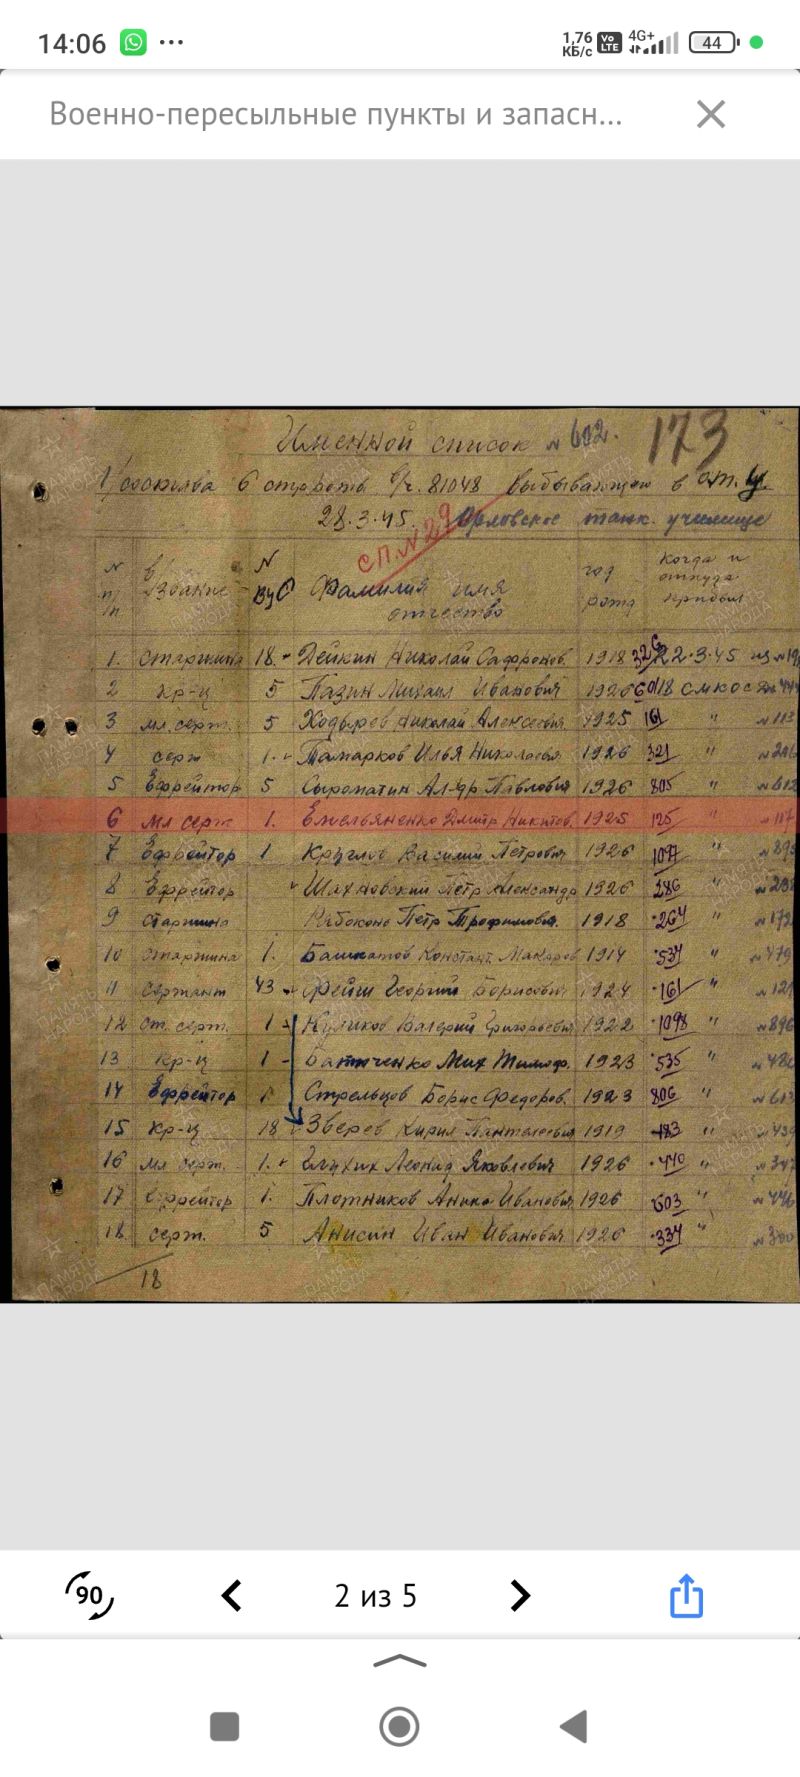 14:06 ... 1,76 КБ/с Vo LTE 4G+ 44
Военно-пересыльные пункты и запасн...
Именной список № 602. 173
состава 6 стороть в/ч. 81048 выбывающем в
28.3.45. Орловское танк. училище
СП.№29
N п/п в/звание N ВУС Фамилия имя отчество год рожд когда и откуда прибыл
1. старшина 18. Дейкин Николай Сафронов. 1918 326 22.3.45 из
2 кр-ц 5 Пазин Михаил Иванович 1926
3 мл. серт. 5 Ходырев Николай Алексеевич 1925 161 " № 113
4 серж 1. Тамарков Илья Николаевич 1926 321 "
5 Ефрейтор 5 Сыроматин Ал-др Павлович 1926 805 " № 612
6 мл серж 1. Емельяненко Дмитр Никитов. 1925 125 "
7 Ефрейтор 1 Круглов Василий Петрович 1926 1097 "
8 Ефрейтор Шахновский Петр Александр 1926 286 "
9 старшина Петр Трофимович. 1918 264 " № 172
10 старшина 1. Башкатов Констант. Макаров 1914 534 " № 479
11 сержант 43 Георгий Борисович 1924 161 " № 121
12 ст. серж. 1 Куликов Валерий Григорьевич 1922 1098 " № 896
13 кр-ц 1 Батюченко Мих Тимоф. 1923 535 "
14 Ефрейтор 1 Стрельцов Борис Федоров. 1923 806 " № 613
15 кр-ц 18 Зверев Кирил Пантелеевич 1919 483 "
16 мл серж. 1. Глухих Леонид Яковлевич 1926 440 "
17 Ефрейтор 1. Плотников Аника Иванович 1926 603 " № 446
18. серж. 5 Анисин Иван Иванович 1926 334 "
18
ПАМЯТЬ НАРОДА
90 2 из 5